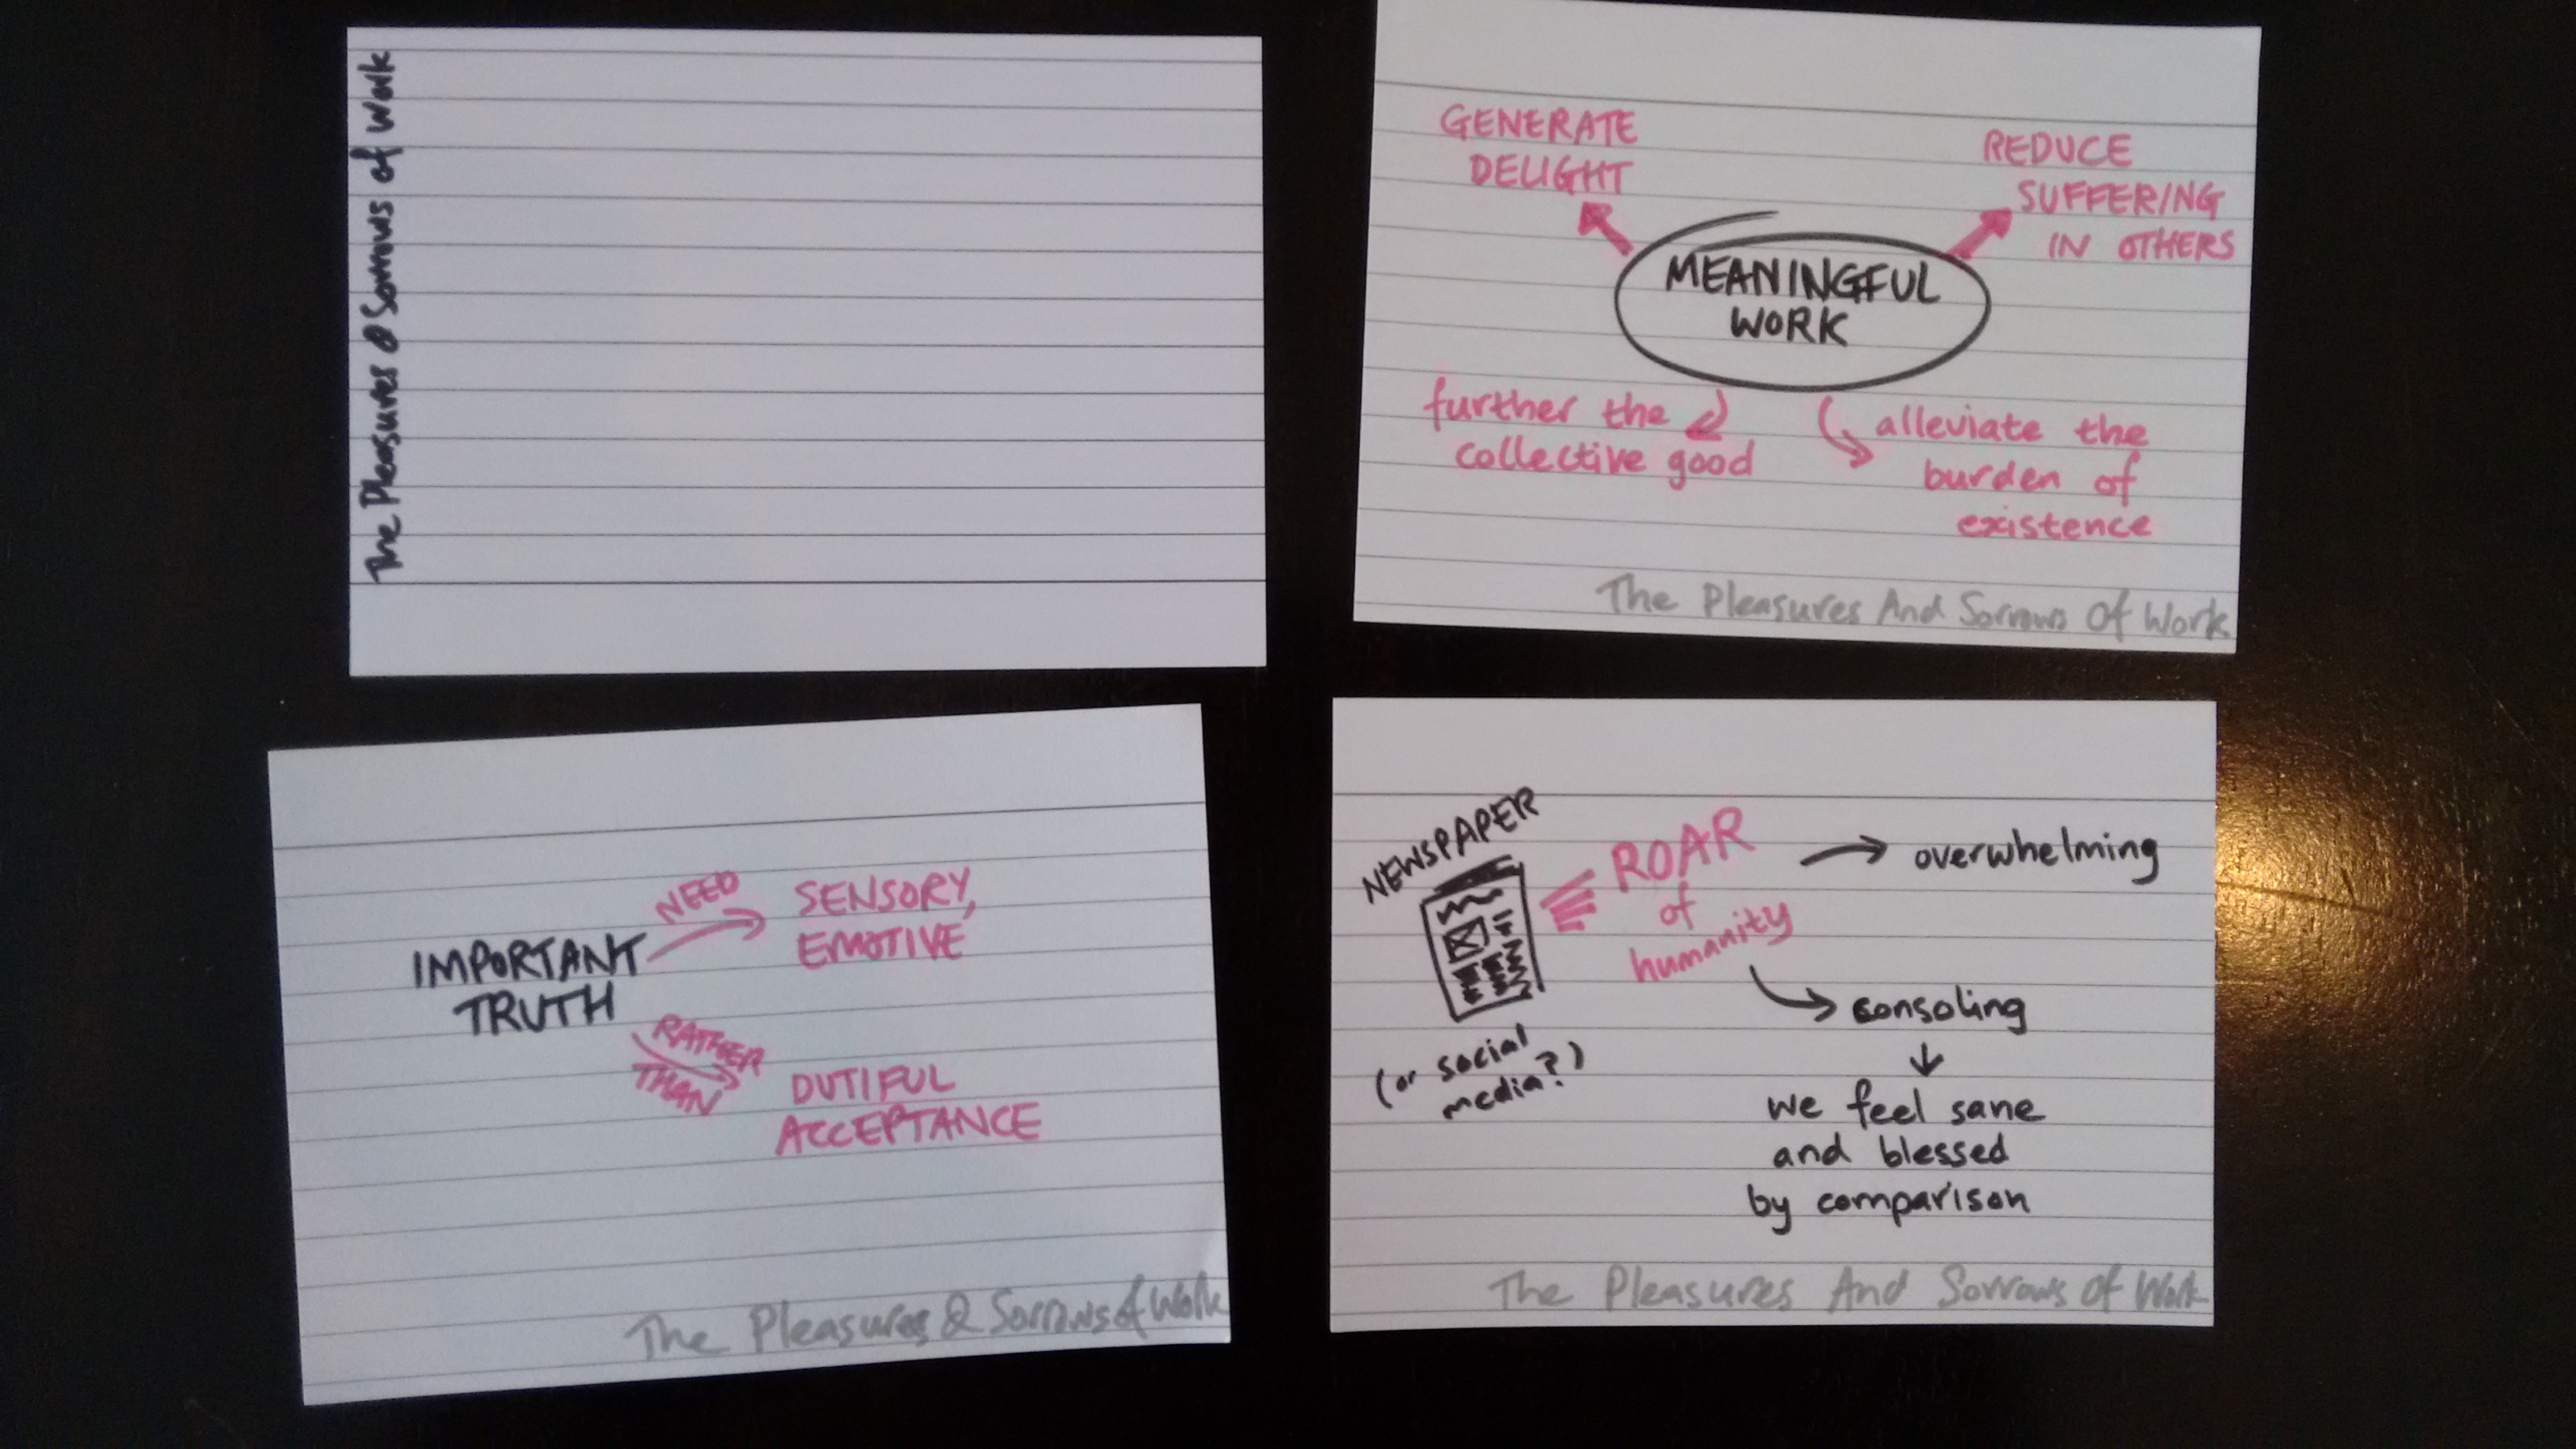 The Pleasures & Sorrows of Work
GENERATE
DELIGHT
REDUCE
SUFFERING
IN OTHERS
MEANINGFUL
WORK
further the
collective good
alleviate the
burden of
existence
The Pleasures And Sorrows Of Work
IMPORTANT
TRUTH
NEED
SENSORY,
EMOTIVE
RATHER
THAN
DUTIFUL
ACCEPTANCE
The Pleasures & Sorrows of Work
NEWSPAPER
(or social
media?)
ROAR
of
humanity
overwhelming
consoling
we feel sane
and blessed
by comparison
The Pleasures And Sorrows Of Work